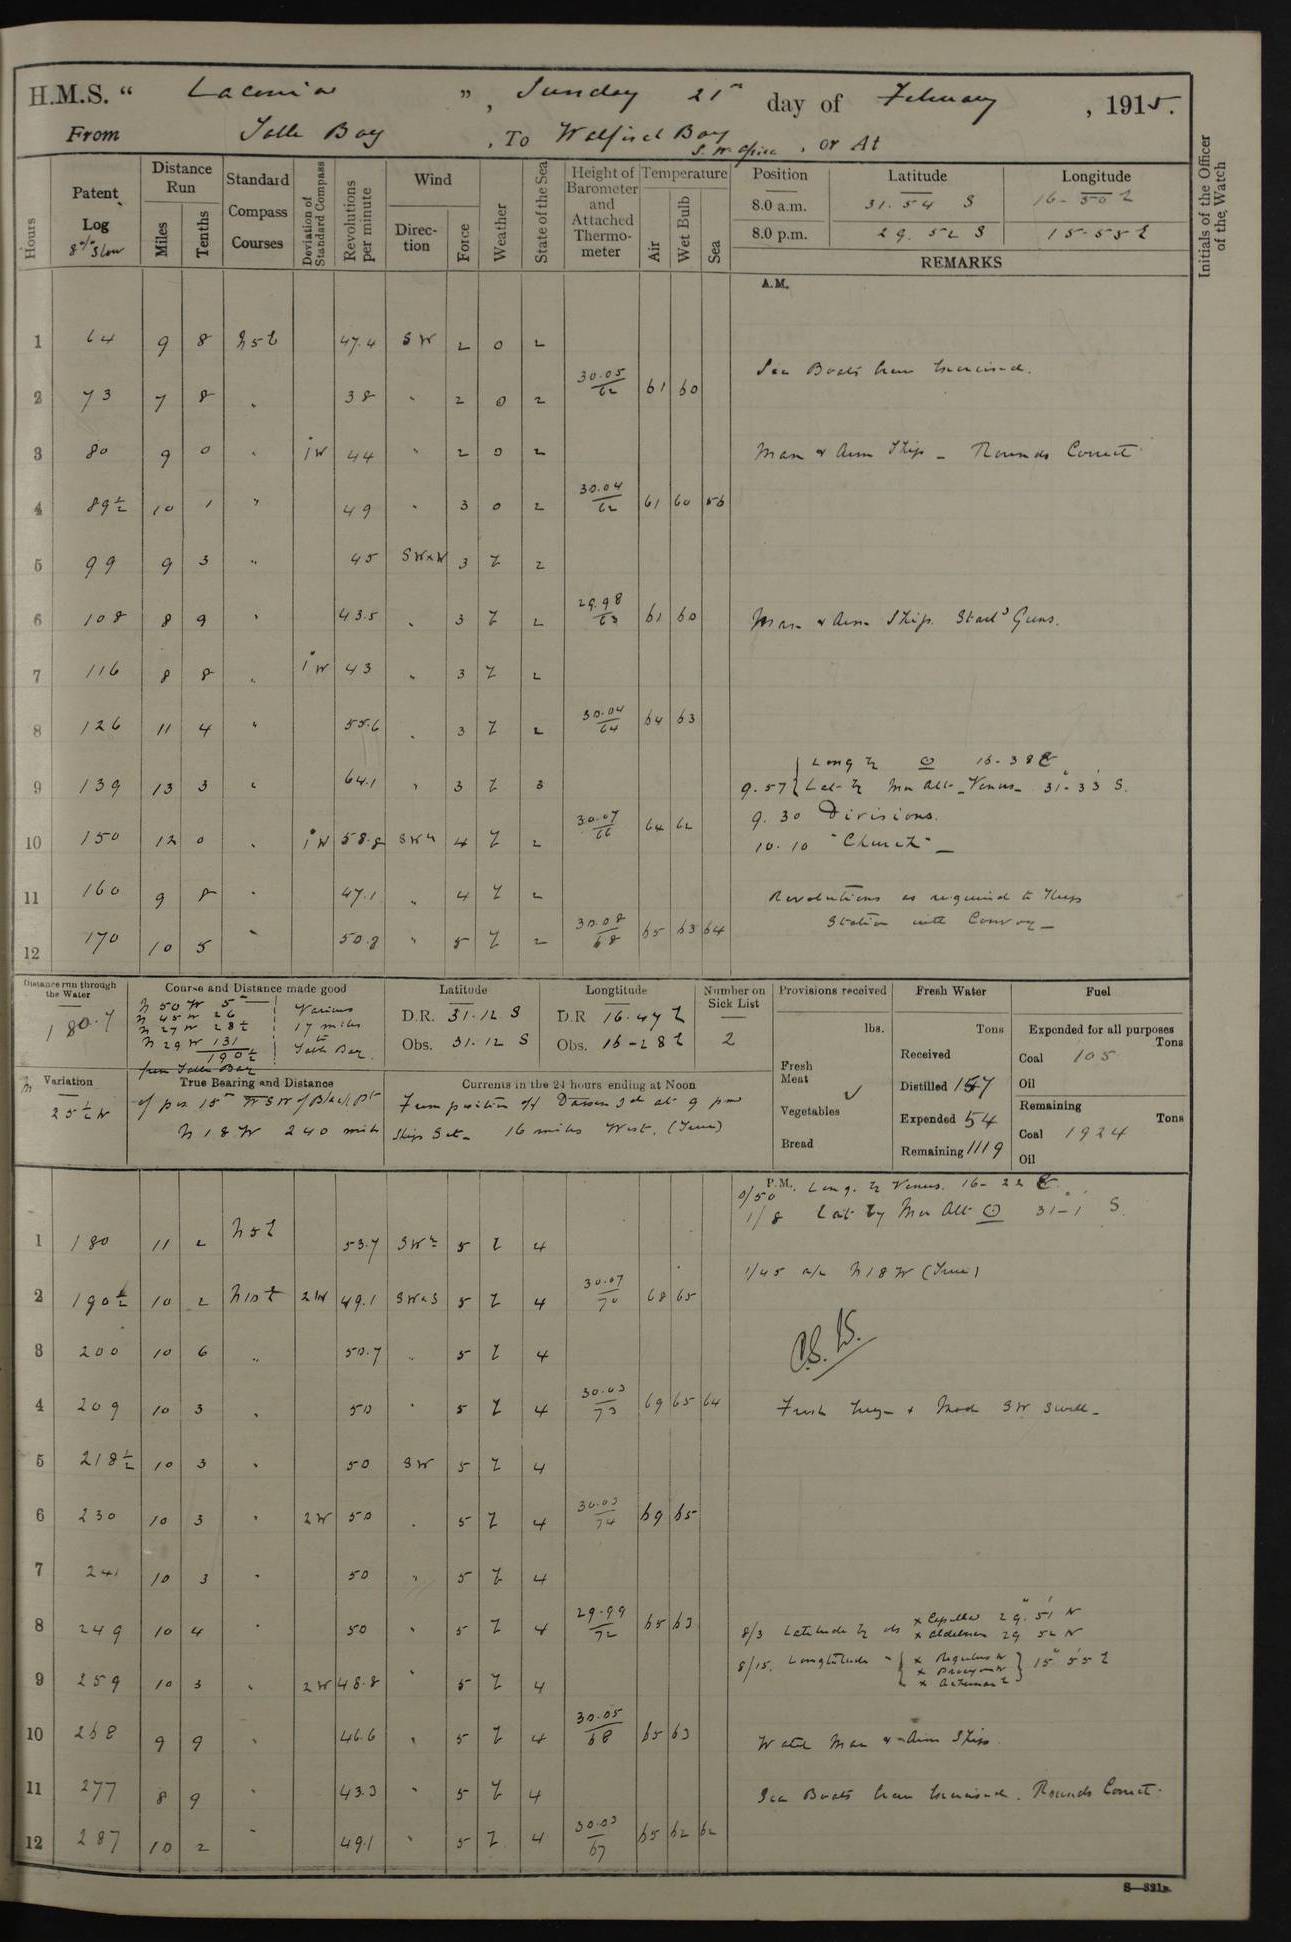 H.M.S. “ Laconia ”, Sunday 21st day of February, 1915.
From Table Bay, To Walfisch Bay S.W. Africa, or At
Hours
Patent Log 8% Slow
Distance Run
Miles
Tenths
Standard Compass Courses
Deviation of Standard Compass
Revolutions per minute
Wind
Direction
Force
Weather
State of the Sea
Height of Barometer and Attached Thermometer
Temperature
Air
Wet Bulb
Sea
Position Latitude Longitude
8.0 a.m. 31.54 S 16-50 E
8.0 p.m. 29.52 S 15-55 E
REMARKS
Initials of the Officer of the Watch
A.M.
1 64 9 8 N5E 47.4 SW 2 0 2
Sea Boats Crew Exercised.
2 73 7 8 " 38 " 2 0 2 30.05/62 61 60
3 80 9 0 " 1W 44 " 2 0 2 Man & Arm Ship - Rounds Correct
4 89½ 10 1 " 49 " 3 0 2 30.04/62 61 60 56
5 99 9 3 " 45 SWxW 3 Z 2
6 108 8 9 " 43.5 " 3 Z 2 29.98/63 61 60 Man & Arm Ship. Starbd Guns.
7 116 8 8 " 1W 43 " 3 Z 2
8 126 11 4 " 55.6 " 3 Z 2 30.04/64 64 63
Long by ☉ 16-38 E
9 139 13 3 " 64.1 " 3 Z 3 9.57 Lat by Mer Alt - Venus - 31-33 S.
9.30 Divisions.
10 150 12 0 " 1W 58.8 4 Z 2 30.07/66 64 62 10.10 "Church" -
11 160 9 8 " 47.1 " 4 Z 2 Revolutions as required to Keep
Station with Convoy -
12 170 10 5 " 50.8 " 5 Z 2 30.08/68 65 63 64
Distance run through the Water
180.7
Course and Distance made good
N 50 W 5
N 45 W 26
N 27 W 28½
N 29 W 131
190½
Various 17 miles Table Bay.
from Table Bay
Latitude
D.R. 31.12 S
Obs. 31.12 S
Longtitude
D.R 16.47 E
Obs. 16-28 E
Number on Sick List
2
Provisions received
lbs.
Fresh Meat
Vegetables
Bread
Fresh Water
Tons
Received
Distilled 157
Expended 54
Remaining 1119
Fuel
Expended for all purposes
Tons
Coal 105
Oil
Remaining
Tons
Coal 1924
Oil
Variation
25½ W
True Bearing and Distance
N 18 W 240 miles
Currents in the 24 hours ending at Noon
From position off Dassen Id at 9 pm
Ships Set - 16 miles West. (True)
P.M.
0/50 Long. by Venus. 16-22 E
1/8 Lat by Mer Alt ☉ 31-1 S.
1 180 11 2 N5E 53.7 5 Z 4
1/45 a/c N18W (True)
2 190½ 10 2 N10E 2W 49.1 SWxS 5 Z 4 30.07/70 68 65
3 200 10 6 " 50.7 " 5 Z 4
4 209 10 3 " 50 " 5 Z 4 30.03/73 69 65 64 Fresh breeze & Mod SW Swell -
5 218½ 10 3 " 50 SW 5 Z 4
6 230 10 3 " 2W 50 " 5 Z 4 30.03/74 69 65
7 241 10 3 " 50 " 5 Z 4
8 249 10 4 " 50 " 5 Z 4 29.99/72 65 63
8/3 Latitude by obs x Capella 29.51 N
x Aldebaran 29 52 N
8/15. Longtitude " x Regulus x Procyon x Achernar E 15 55 E
9 259 10 3 " 2W 48.8 " 5 Z 4
10 268 9 9 " 46.6 " 5 Z 4 30.05/68 65 63 Watch Man & Arm Ship.
11 277 8 9 " 43.3 " 5 Z 4 Sea Boats Crew Exercised. Rounds Correct.
12 287 10 2 " 49.1 " 5 Z 4 30.03/67 65 62 62
S—321B.